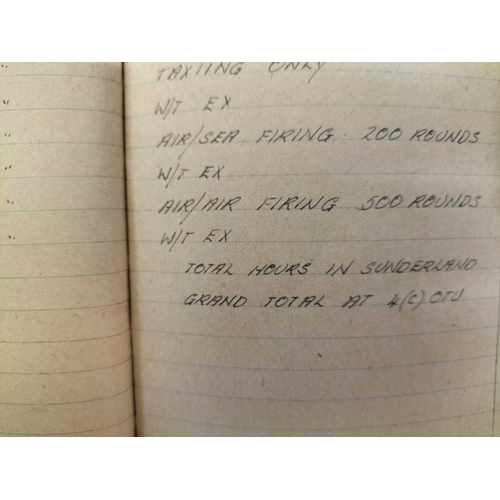 "
TAXIING ONLY
" W/T EX
" AIR/SEA FIRING. 200 ROUNDS
" W/T EX
" AIR/AIR FIRING 500 ROUNDS
" W/T EX
TOTAL HOURS IN SUNDERLAND
GRAND TOTAL AT 4(C) OTU